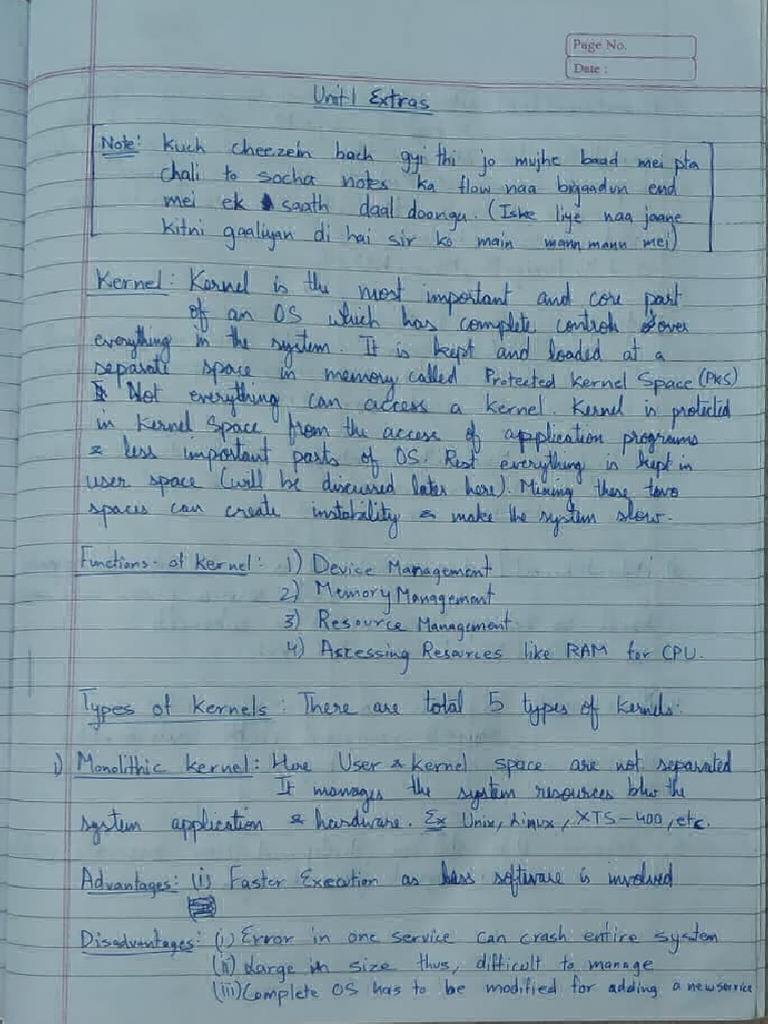 Page No.
Date :
Unit 1 Extras
Note: Kuch cheezein bach gyi thi jo mujhe baad mei pta
chali to socha notes ka flow naa bigaadun end
mei ek saath daal doonga. (Iske liye naa jaane
kitni gaaliyan di hai sir ko main mann mann mei)
Kernel: Kernel is the most important and core part
of an OS which has complete control over
everything in the system. It is kept and loaded at a
separate space in memory called Protected Kernel Space (PKS)
Not everything can access a kernel. Kernel is protected
in Kernel Space from the access of application programs
& less important parts of OS. Rest everything is kept in
user space (will be discussed later here). Mixing these two
spaces can create instability & make the system slow.
Functions of Kernel: 1) Device Management
2) Memory Management
3) Resource Management
4) Accessing Resources like RAM for CPU.
Types of Kernels: There are total 5 types of kernels:
1) Monolithic Kernel: Here User & Kernel space are not separated
It manages the system resources b/w the
system application & hardware. Ex Unix, Linux, XTS-400, etc.
Advantages: (i) Faster Execution as less software is involved
Disadvantages: (i) Error in one service can crash entire system
(ii) Large in size thus, difficult to manage
(iii) Complete OS has to be modified for adding a new service